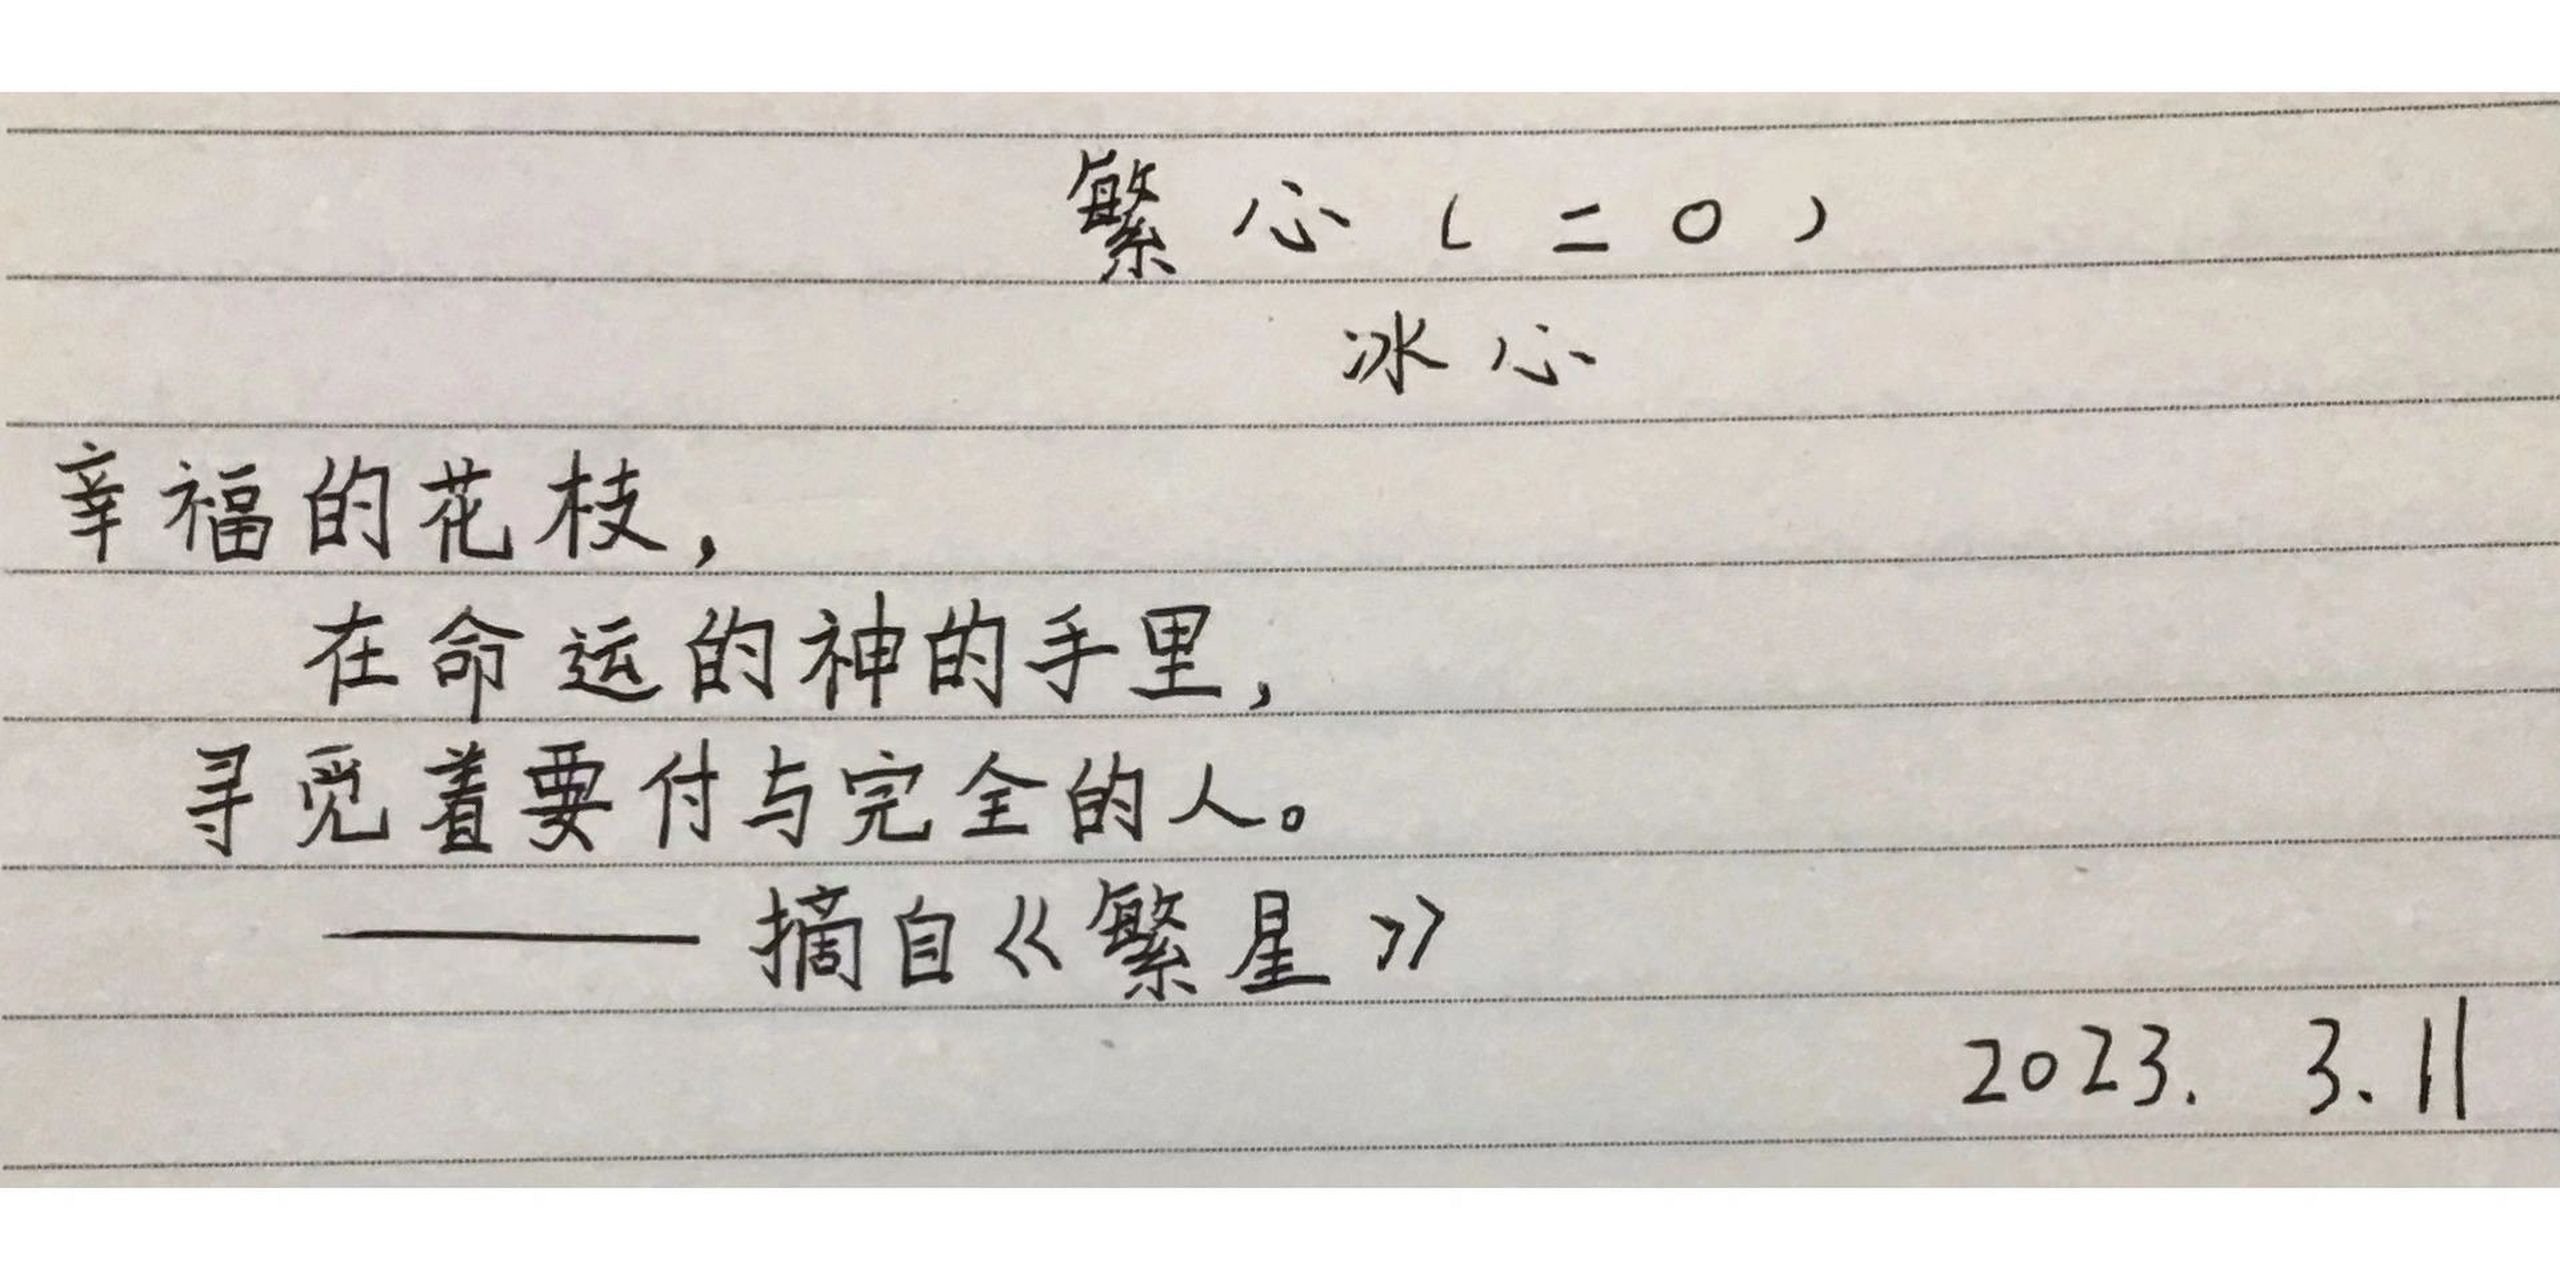 繁心（二〇）
冰心
幸福的花枝，
在命运的神的手里，
寻觅着要付与完全的人。
——摘自《繁星》
2023. 3.11